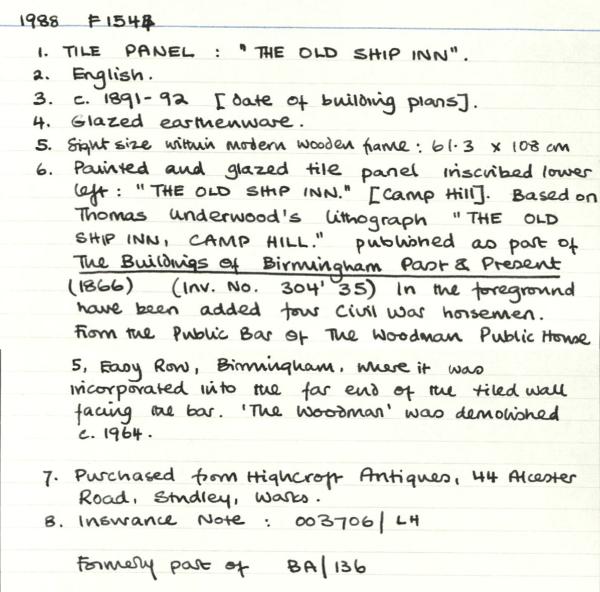 1988 F1548
1. TILE PANEL : "THE OLD SHIP INN".
2. English.
3. c. 1891-92 [date of building plans].
4. Glazed earthenware.
5. Sight size within modern wooden frame: 61.3 x 108 cm
6. Painted and glazed tile panel inscribed lower
left: "THE OLD SHIP INN." [Camp Hill]. Based on
Thomas Underwood's lithograph "THE OLD
SHIP INN, CAMP HILL." published as part of
The Buildings of Birmingham Past & Present
(1866) (Inv. No. 304' 35) In the foreground
have been added four Civil War horsemen.
From the Public Bar of The Woodman Public House
5, Easy Row, Birmingham, where it was
incorporated into the far end of the tiled wall
facing the bar. 'The Woodman' was demolished
c. 1964.
7. Purchased from Highcroft Antiques, 44 Alcester
Road, Studley, Warks.
8. Insurance Note : 003706/LH
Formerly part of BA/136